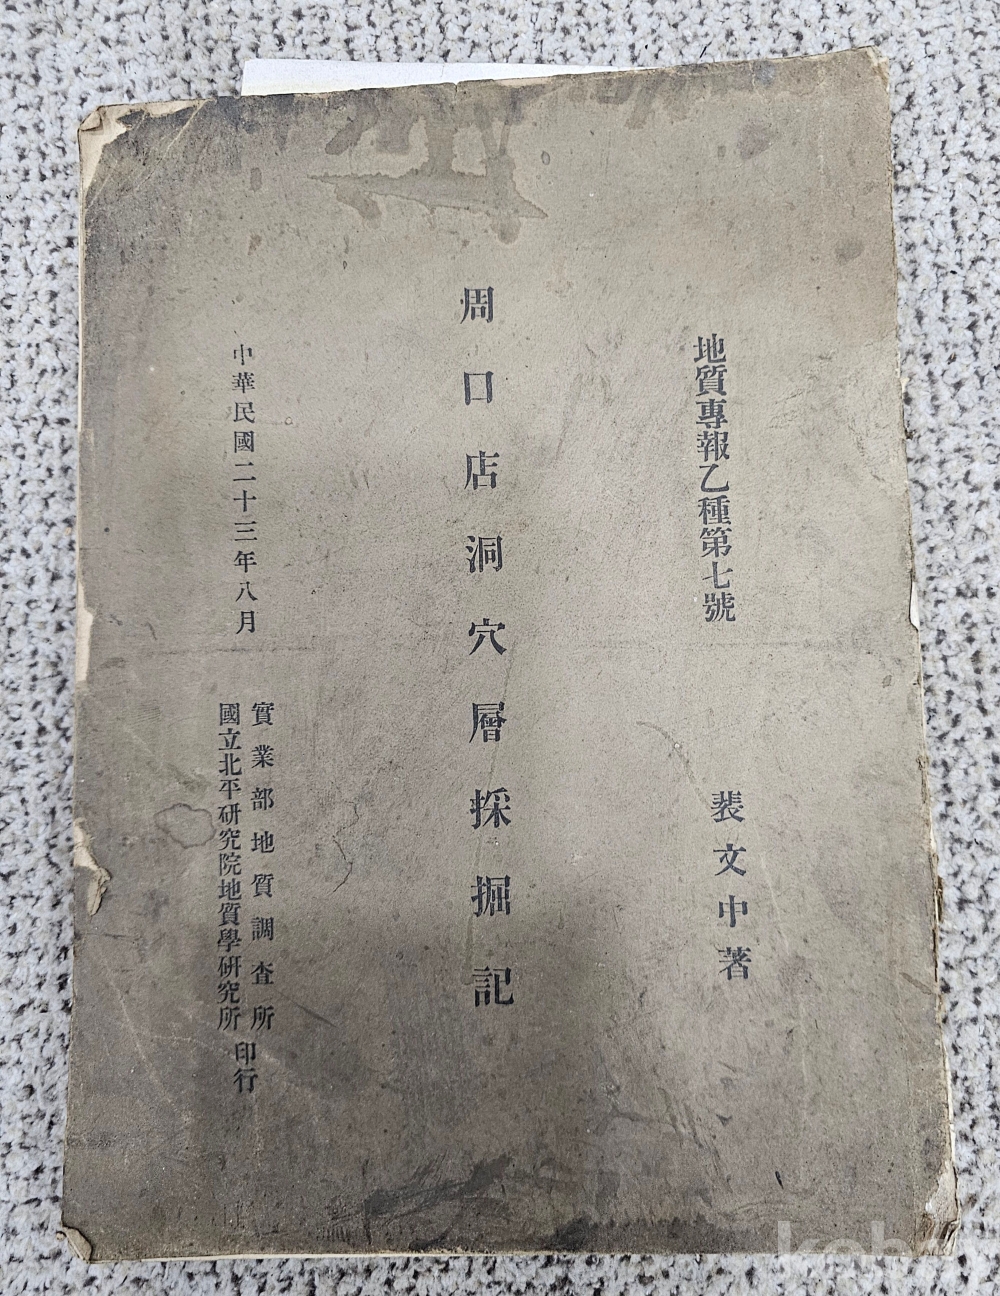 地質專報乙種第七號
裴文中著
周口店洞穴層採掘記
中華民國二十三年八月
實業部地質調查所
國立北平研究院地質學研究所
印行